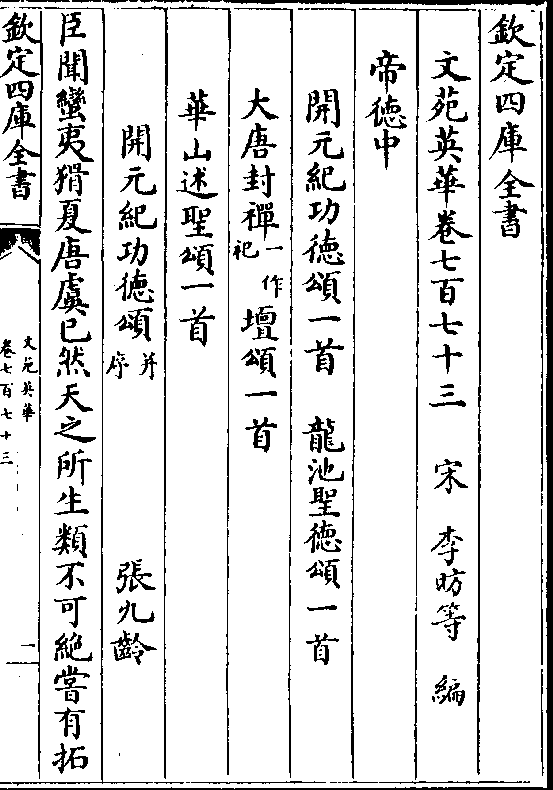 欽定四庫全書
文苑英華卷七百七十三 宋 李昉等 編
帝德中
開元紀功德頌一首 龍池聖德頌一首
大唐封禪一作祀壇頌一首
華山述聖頌一首
開元紀功德頌并序 張九齡
臣聞蠻夷猾夏唐虞已然天之所生類不可絶嘗有拓
欽定四庫全書
文苑英華
卷七百七十三
一